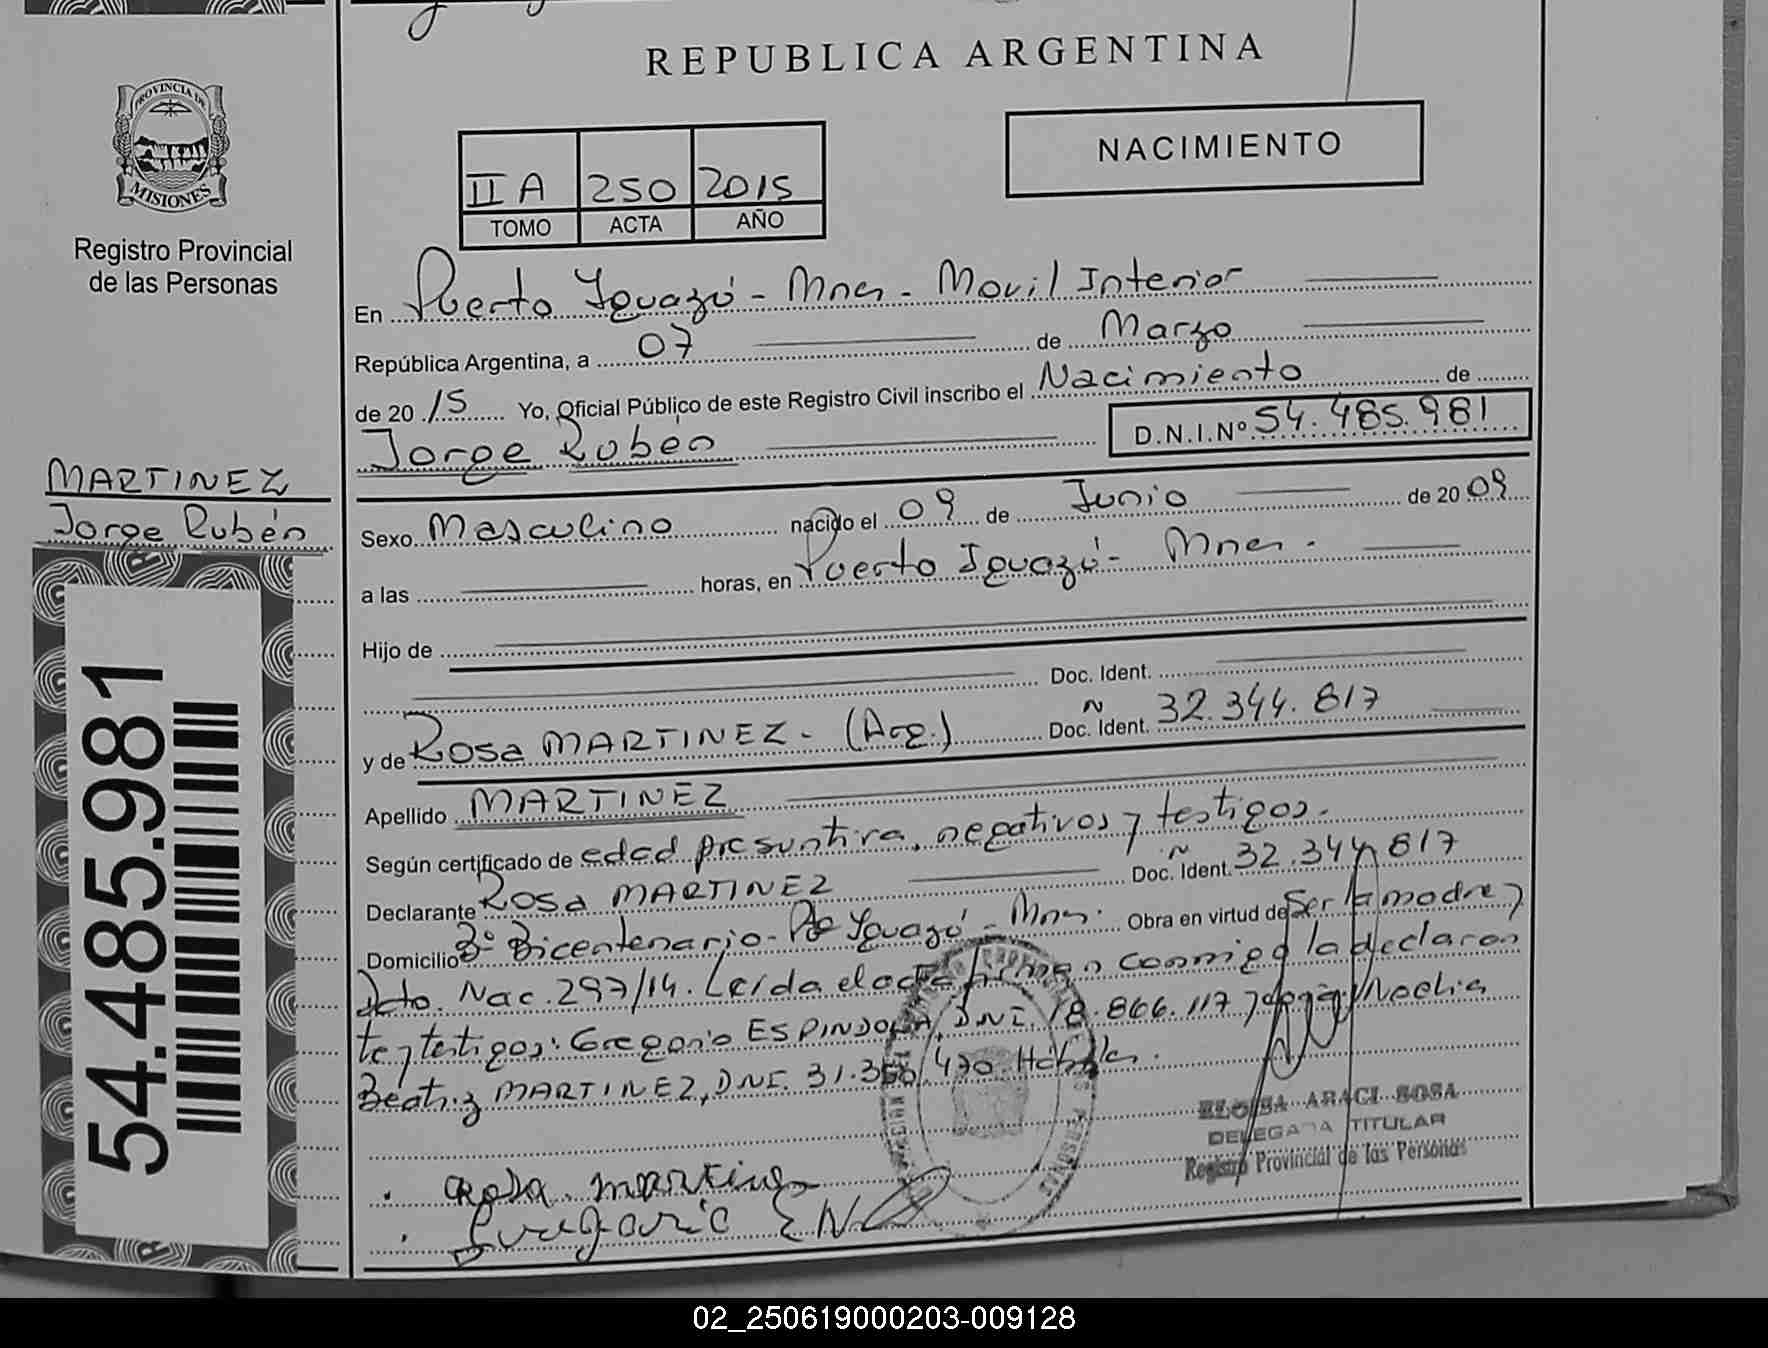 REPUBLICA ARGENTINA
PROVINCIA DE
MISIONES
Registro Provincial
de las Personas
NACIMIENTO
II A 250 2015
TOMO ACTA AÑO
En Puerto Iguazú - Mnes - Movil Interior
República Argentina, a 07 de Marzo
de 2015 Yo, Oficial Público de este Registro Civil inscribo el Nacimiento de
Jorge Rubén D.N.I.Nº 54.485.981
MARTINEZ
Jorge Rubén
54.485.981
Sexo Masculino nacido el 09 de Junio de 2009
a las horas, en Puerto Iguazú - Mnes.
Hijo de
Doc. Ident.
y de Rosa MARTINEZ - (Arg.) Doc. Ident. 32.344.817
Apellido MARTINEZ
Según certificado de edad presuntiva, negativos y testigos.
Declarante Rosa MARTINEZ Doc. Ident. 32.344.817
Domicilio Bº Bicentenario - Pto Iguazú - Mnes. Obra en virtud de Ser la madre y
Dcto. Nac. 297/14. Leída el acta firman conmigo la declaran
te y testigos: Gregorio ESPINDOLA, DNI. 18.866.117 y Noelia
Beatriz MARTINEZ, DNI. 31. 470. Hábiles.
ELOISA ARACI SOSA
DELEGADA TITULAR
Registro Provincial de las Personas
Rosa martinez
02_250619000203-009128